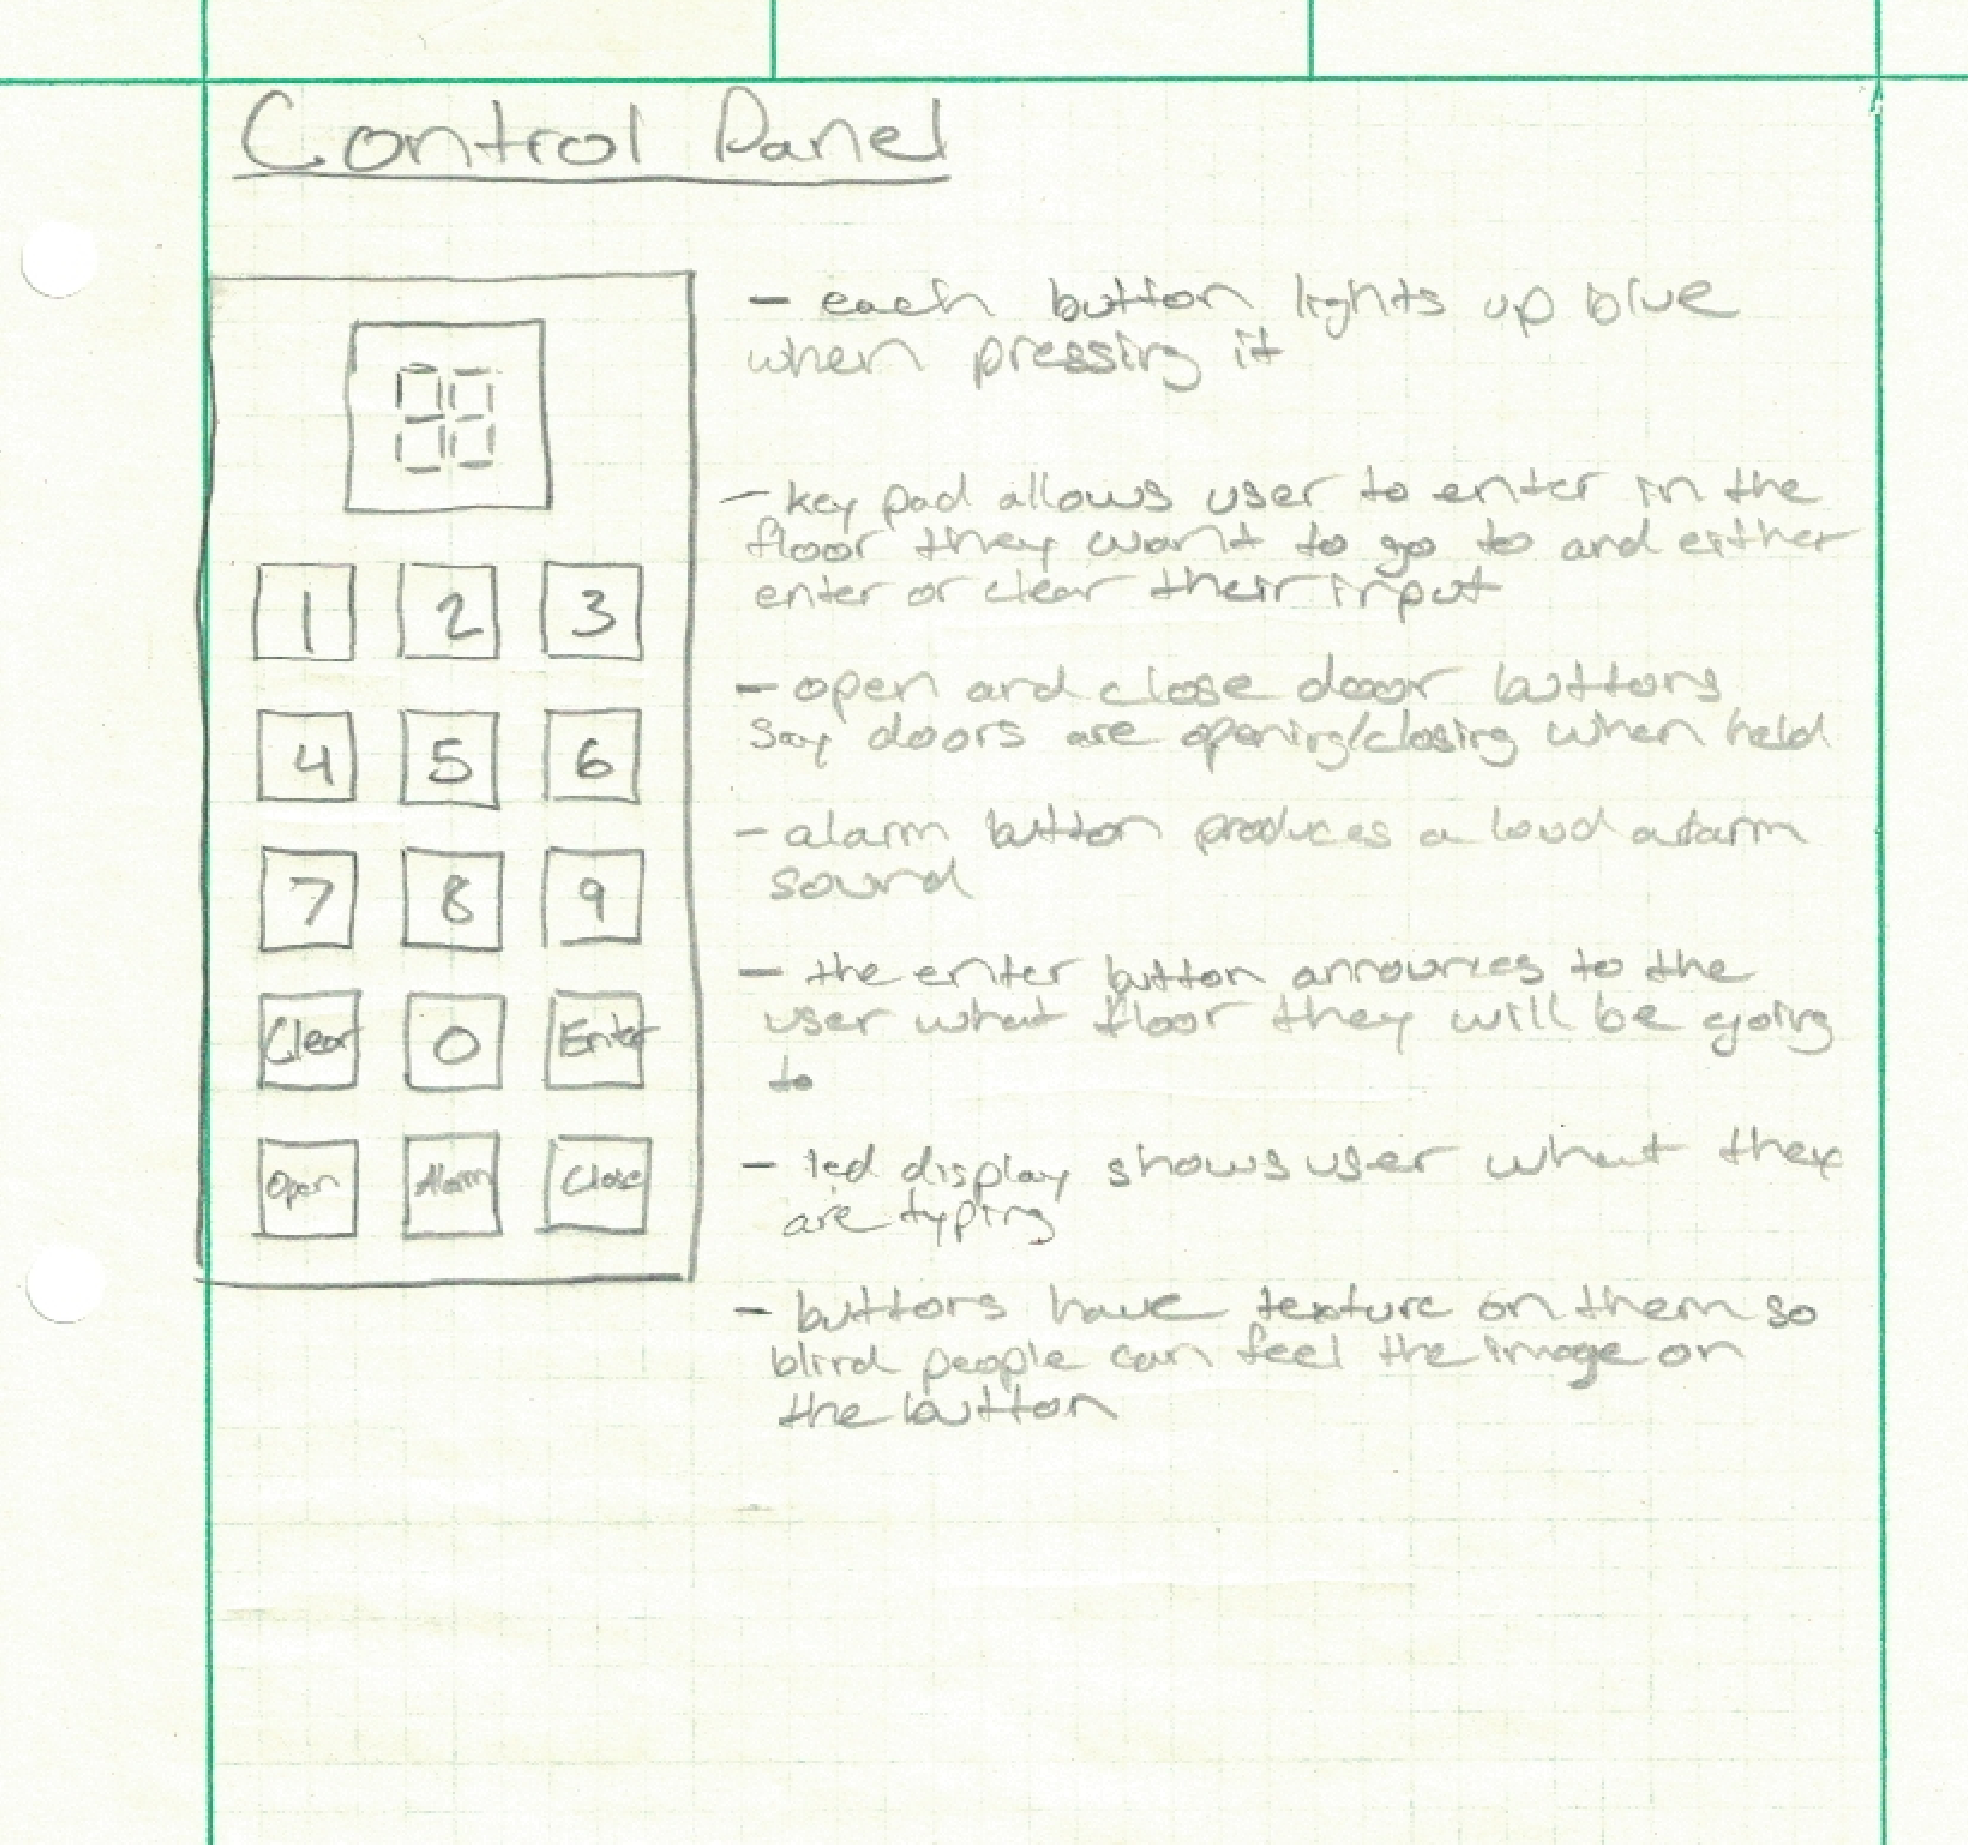 Control Panel
- each button lights up blue
when pressing it
88
- key pad allows user to enter in the
floor they want to go to and either
enter or clear their input
1 2 3
- open and close dooor buttons
say doors are opening/closing when held
4 5 6
- alarm button produces a loud alarm
sound
7 8 9
- the enter button announces to the
user what floor they will be going
to
Clear 0 Enter
- led display shows user what they
are typing
Open Alarm Close
- buttons have texture on them so
blind people can feel the image on
the button